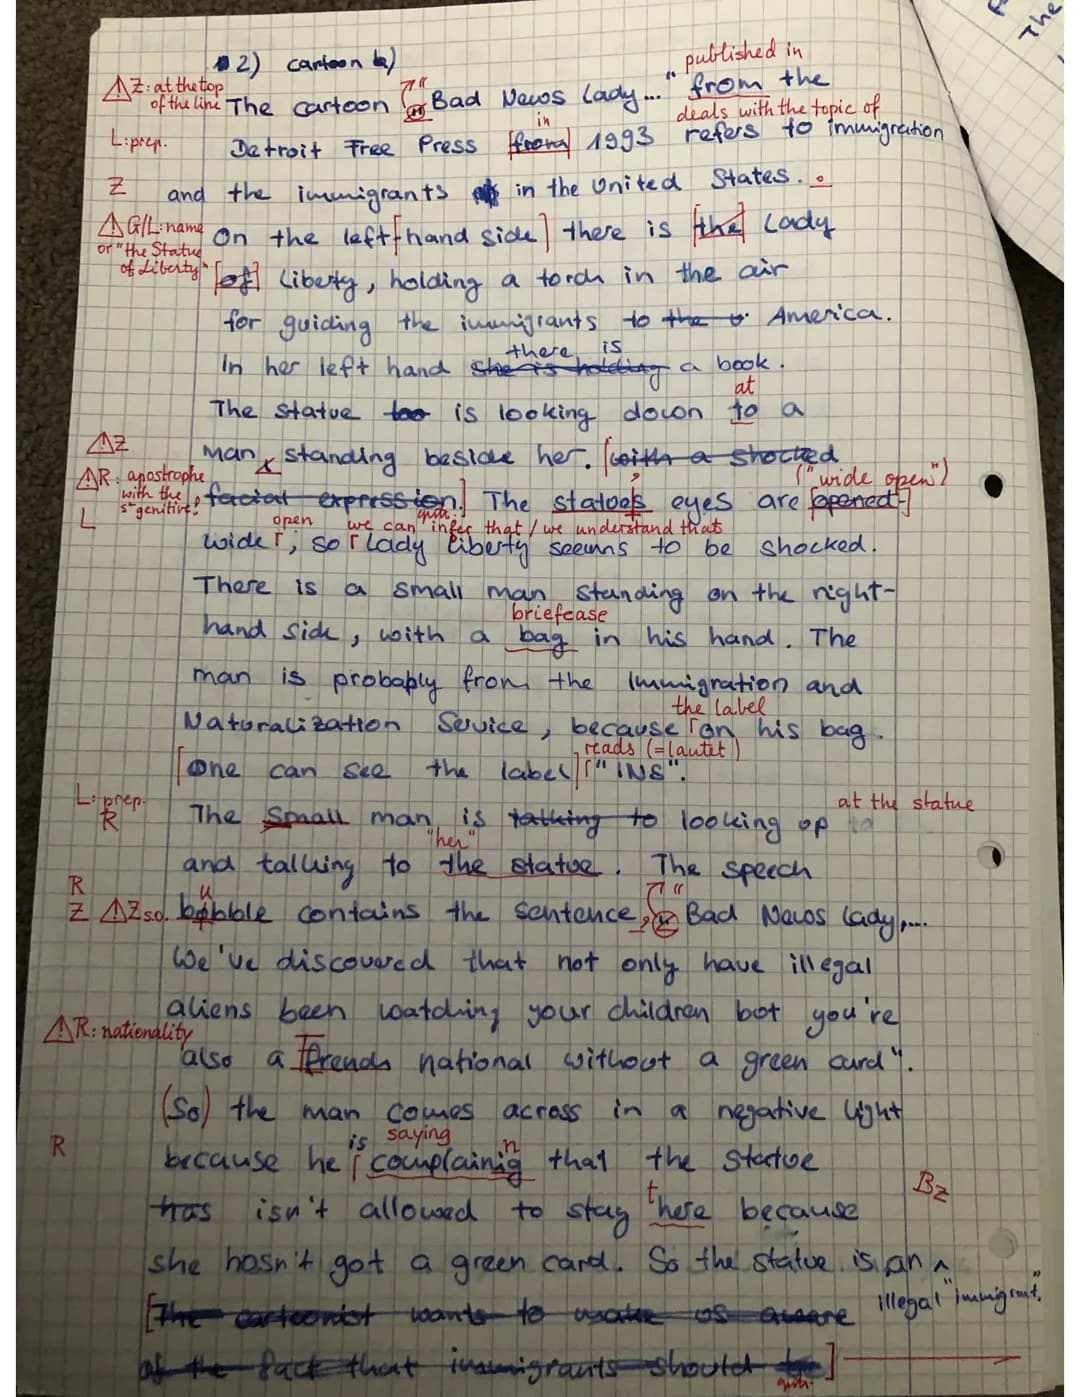 2) cartoon b)
published in
⚠Z: at the top The cartoon " Bad News Lady..." from the
of the line
in deals with the topic of
L: prep. Detroit Free Press [from] 1993 refers to immigration
Z and the immigrants in the United States.
⚠G/L: name On the left[hand side] there is [the] Lady
or "the Statue
of Liberty" [of] Liberty, holding a torch in the air
for guiding the immigrants to the America.
there is
In her left hand she is holding a book.
at
The statue too is looking down to a
⚠Z man, standing beside her. [with a shocked
⚠R: apostrophe ("wide open")
with the facial expression.] The statue's eyes are [opened]
s-genitive!
L open we can infer that / we understand that
wide, so Lady Liberty seems to be shocked.
There is a small man standing on the right-
briefcase
hand side, with a bag in his hand. The
man is probaply from the Immigration and
the label
Naturalization Service, because on his bag.
reads (=lautet)
[one can see the label] "INS".
L: prep. at the statue
R The small man is talking to looking up to
"her"
and talking to the statue. The speech
R u
Z ⚠Z s.o. bobble contains the sentence, " Bad News Lady,...
We've discovered that not only have illegal
aliens been watching your children but you're
⚠R: nationality
also a french national without a green card".
(So) the man comes across in a negative light
is saying n
R because he complainig that the statue
t
has isn't allowed to stay here because Bz
she hasn't got a green card. So the statue is an
illegal "immigrant."
[The cartoonist wants to make us aware
of the fact that immigrants should be]